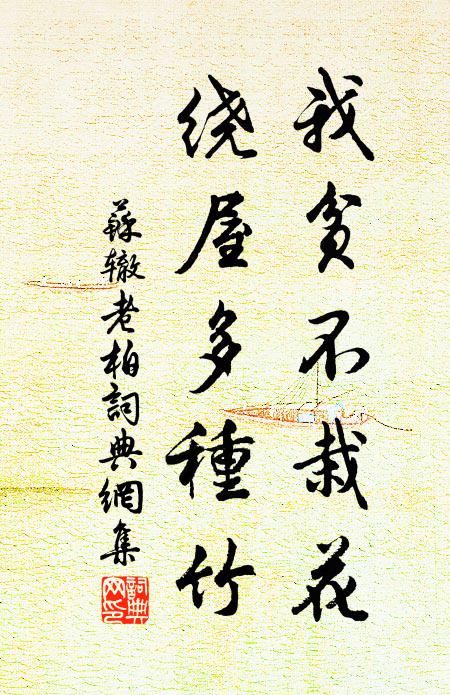 我貧不栽花
绕屋多種竹
蘇辙老柏詞典網集
詞典
网印